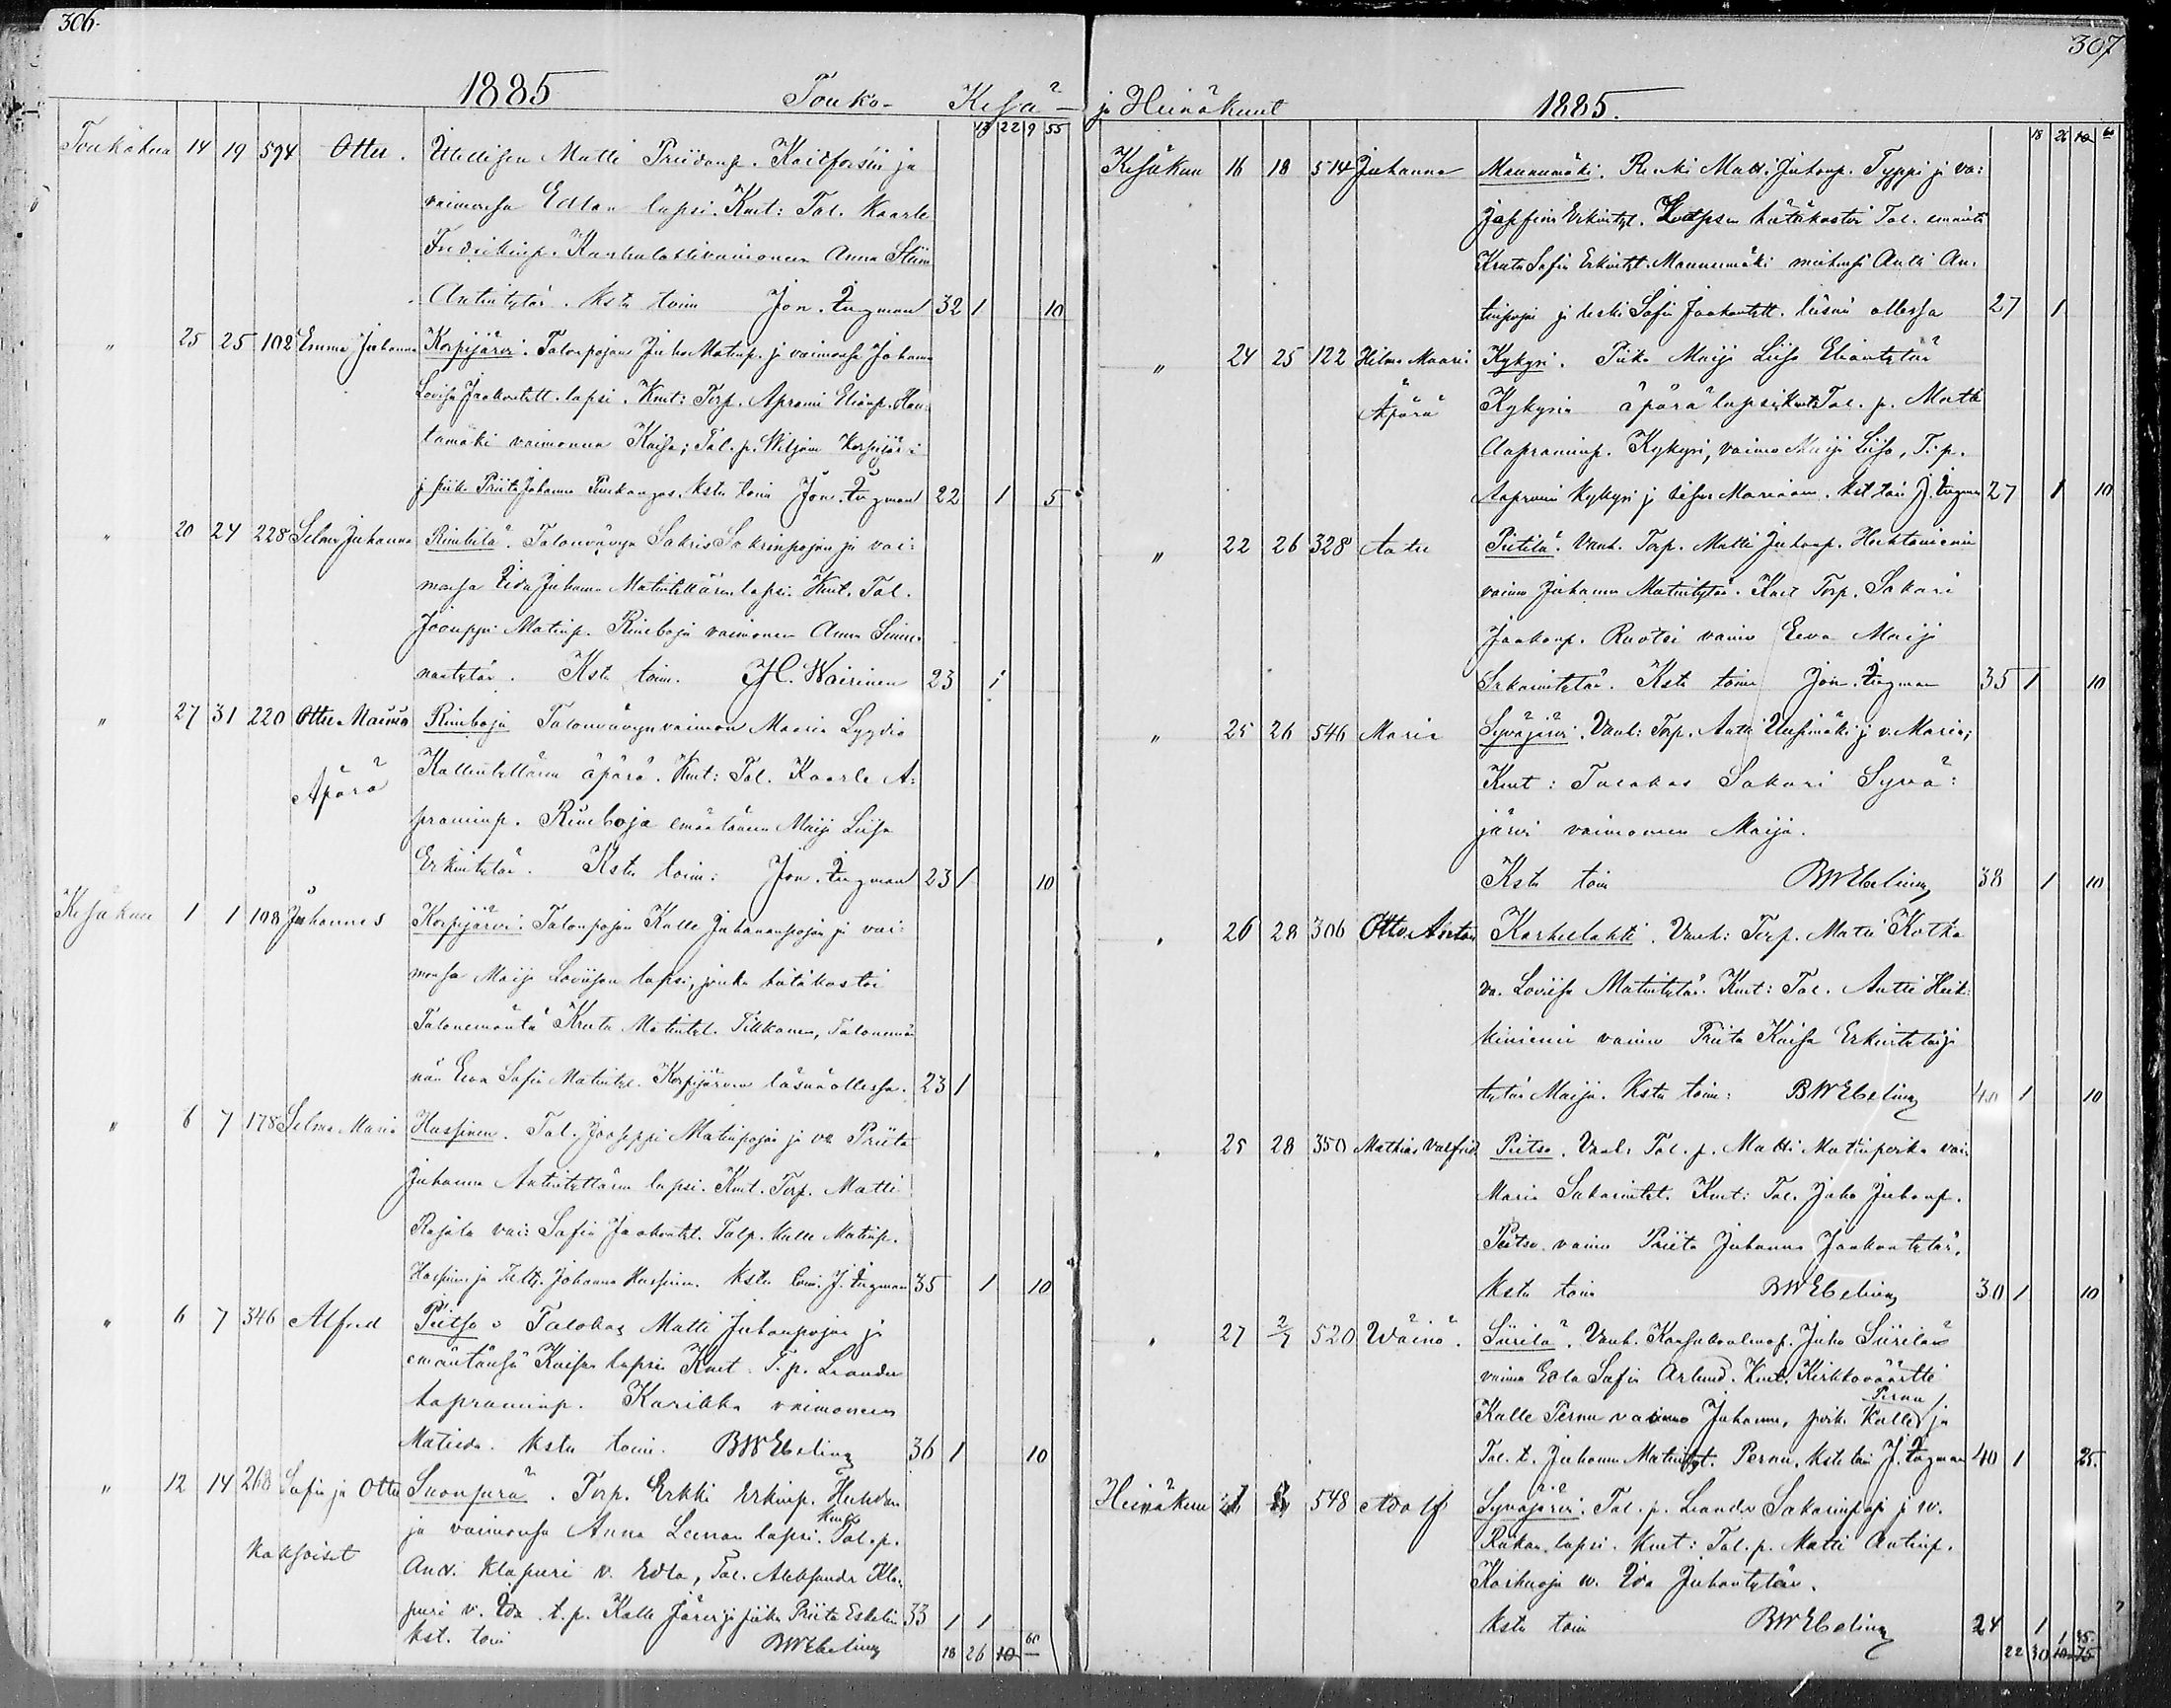 306.
1885 Touko- Kesä-
13 22 9 55
Toukokuu 14 19 594 Otto. Matti Kaitforsin ja
vaimonsa Edlan lapsi. Kmt: Tal. Kaarle
Fredrikinp. Karhulahti vaimonen Anna Stiina
Antintytär. Kste toim Jon. Lugman 32 1 10
" 25 25 102 Emma Juhanna Korpijärvi. Talonpojan Juho Matinp. ja vaimonsa Johanna
Lovisa Jaakontytt. lapsi. Kmt: Torp. Aprami Elianp. Hau-
tamäki vaimonna Kaisa; Tal. p. Wiljam Korpijärvi
j piika Priita Johanna Puukangas. Kste toim Jon. Lugman 22 1 5
" 20 24 228 Selma Juhanna Rimbilä. Talonvävyn Sakris Sakrinpojan ja vai-
monsa Iida Juhanna Matintyttären lapsi. Kmt. Tal.
Jooseppi Matinp. Rimboja vaimonen Anna
. Kste toim. H. Wairinen 23 1
" 27 31 220 Otto Maunu Rimboja Talonvävyn vaimon Maaria Lyydia
Äpärä Kallentyttären äpärä. Kmt: Tal. Kaarle A-
praminp. Rimboja emäntänen Maija Liisa
Erkintytär. Kste toim: Jon. Lugman 23 1 10
Kesäkuu 1 1 108 Juhannes Korpijärvi. Talonpojan Kalle Juhananpojan ja vai-
monsa Maija Loviisan lapsi, jonka hätäkastoi
Talonemäntä Kreeta Matintyt. Tikkanen, Talonemän-
nän Eeva Sofia Matintyt. Korpijärven läsnäollessa. 23 1
" 6 7 178 Selma Maria Hassinen. Tal. Jooseppi Matinpojan ja va Priita
Juhanna Antintyttären lapsi. Kmt. Torp. Matti
Rajala vai: Sofia Jaakontyt. Talp. Kalle Matinp.
Hassinen ja Johanna Hassinen. Kste toim. J. Lugman 35 1 10
" 6 7 346 Alfred Pietso Talokas Matti Juhonpojan ja
emäntänsä Kaisan lapsi Kmt. T. p. Leander
Aapraminp. Karikka vaimonen
Matilda. Kste toim. BWEbeling 36 1 10
" 12 14 268 Sofia ja Otto Suonperä. Torp. Erkki Erkinp. Huhdan
Kmt
ja vaimonsa Anna Leenan lapsi. Tal. p.
kaksoiset And. Klapuri v. Edla, Tal. Aleksander Kla-
puri v. Ida t. p. Kalle Järvi ja piika Priita Eskelin 33 1 1
kst. toim BWEbeling 18 26 10 60
307
ja Heinäkuut 1885.
18 26 10 60
Kesäkuu 16 18 514 Juhanna Maunumäki. Renki Matti Juhonp. Typpi ja va:
Josefina Erkintyt. Lapsen hätäkastoi Tal. emäntä
Kreeta Sofia Erkintyt. Maunumäki miehensä Antti An-
tinpojan ja leski Sofia Jaakontytt. läsnä ollessa 27 1
" 24 25 122 Hilma Maaria Kykyri. Piika Maija Liisa Eliantytär
Äpärä Kykyrin äpärä lapsi Kmt Tal. p. Matti
Aapraminp. Kykyri, vaimo Maija Liisa, T. p.
Aaprami Kykyri j sisar Mariana. Kst toim J. Lugman 27 1 10
" 22 26 328 Aatu Pietilä. Vanh. Torp. Matti Juhonp. Huhtaniemen
vaimo Juhanna Matintytär. Kmt Torp. Sakari
Jaakonp. Ruotsi vaimo Eeva Maija
Sakarintytär. Kste toim Jon. Lugman 35 1 10
" 25 26 546 Maria Syväjärvi. Vanh: Torp. Antti Uusimäki j v. Maria;
Kmt: Talokas Sakari Syvä-
järvi vaimonen Maija.
Kste toim BWEbeling 38 1 10
" 26 28 306 Otto Anton Karhulahti. Vanh: Torp. Matti Kotka
va. Loviisa Matintytär. Kmt: Tal. Antti Heik-
kiniemi vaimo Priita Kaisa Erkintytär j
tytär Maija. Kste toim: BWEbeling 40 1 10
" 25 28 350 Mathias Valfrid Pietso. Vanh: Tal. p. Matti Matinpoika vai.
Maria Sakarintyt. Kmt: Tal. Juho Juhonp.
Pietso vaimo Priita Juhanna Jaakontytär,
Kste toim BWEbeling 30 1 10
" 27 2/7 520 Wäinö. Siirilä. Vanh. Kansakoulunop. Juho Siirilän
vaimo Edla Sofia Arlund. Kmt. Kirkkoväärtti
Pernu
Kalle Pernu vaimo Juhanna, poika Kalle ja
Tal. t. Juhanna Matintyt. Pernu, Kste toim J. Lugman 40 1 25.
Heinäkuu 1 548 Adolf Syväjärvi. Tal. p. Leander Sakarinpoja j w.
Riikan lapsi. Kmt: Tal. p. Matti Antinp.
Karhuoja w. Ida Juhontytär.
Kste toim BWEbeling 24 1
22 30 10 75